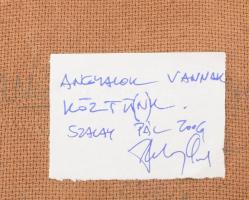 ANGYALOK VANNAK
KÖZT(Ü)NK.
SZALAY PÁL 2006